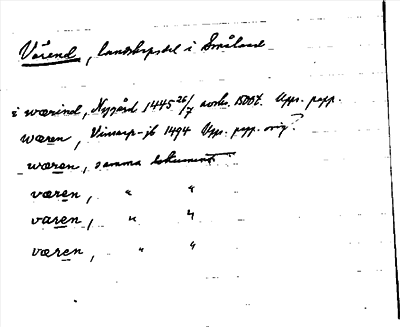 Värend, landskapsdel i Småland
i wærind, Nygård 1445 26/7 avskr. 1500t. Upps. papp.
wæren, Vinsarp-jb 1494 Upps. papp. orig.
wæren, samma dokument
væren, " "
varen, " "
væren, " "